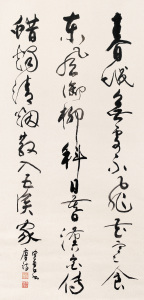 春城無處不飛花寒食
東風御柳斜日暮漢宮傳
蜡燭清烟散入五侯家